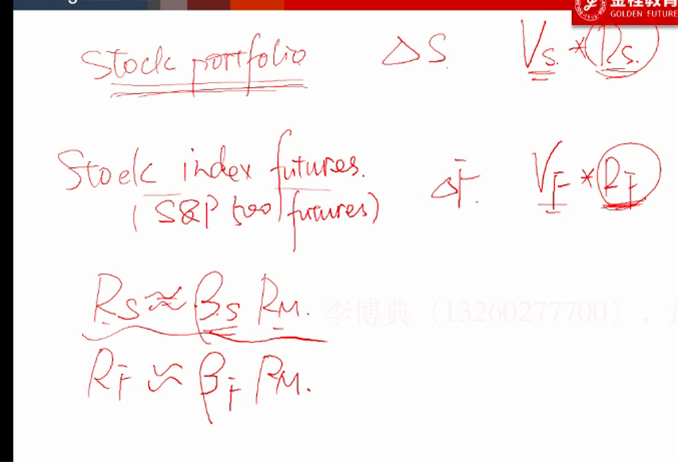 金程教育
GOLDEN FUTURE
Stock portfolio ΔS Vs * Rs.
Stock index futures. ΔF. VF * RF
(S&P 500) futures)
Rs ≈ βs RM.
李博典（13260277700），
RF ≈ βF RM.